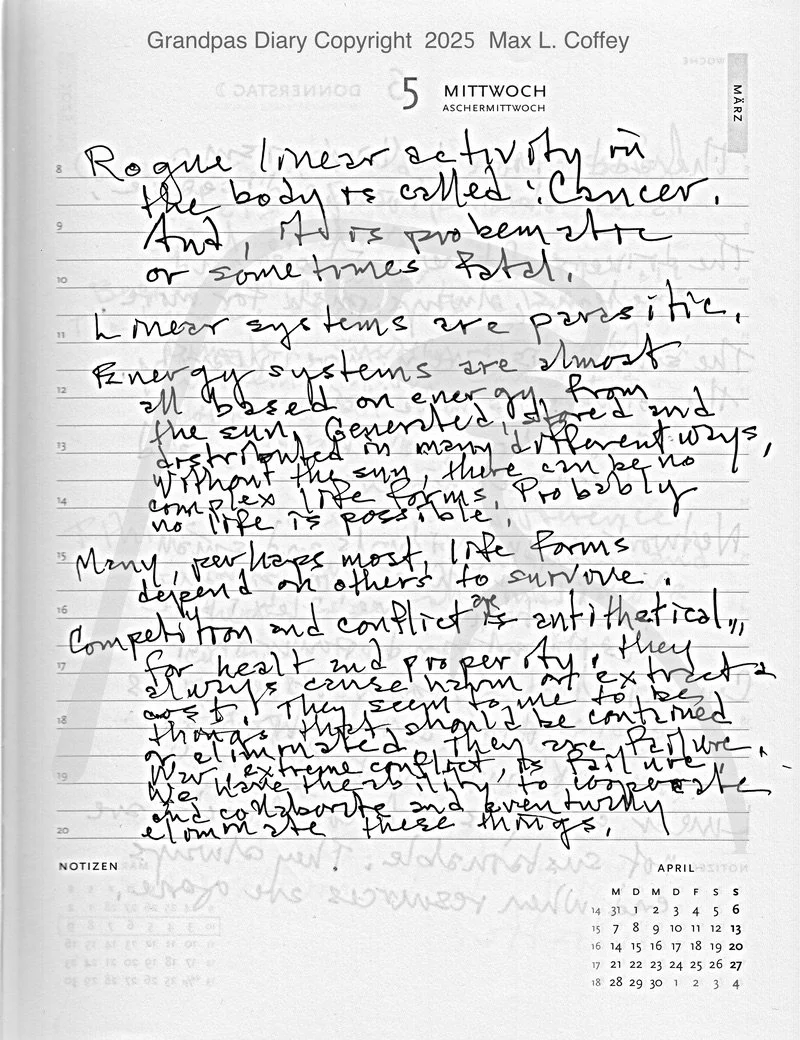 Grandpas Diary Copyright 2025 Max L. Coffey
5 MITTWOCH
ASCHERMITTWOCH
MÄRZ
8 Rogue linear activity in
the body is called: Cancer.
9 And, it is probematic
10 or sometimes fatal.
11 Linear systems are parasitic.
Energy systems are almost
12 all based on energy, from
the sun. Generated, stored and
13 distributed in many different ways,
without the sun, there can be no
14 complex life forms. Probably
no life is possible.
15 Many, perhaps most, life forms
depend on others to survive.
16 are
Competition and conflict is antithetical,,,
17 for healt and properity, they
always cause harm or extract a
cost! They seem to me to be
18 things that should be contained
or eliminated. They are failure.
War, extreme conflict, is failure,
19 We have the ability to cooperate
and collaborate and eventually
20 eliminate these things.
NOTIZEN
APRIL
M D M D F S S
14 31 1 2 3 4 5 6
15 7 8 9 10 11 12 13
16 14 15 16 17 18 19 20
17 21 22 23 24 25 26 27
18 28 29 30 1 2 3 4